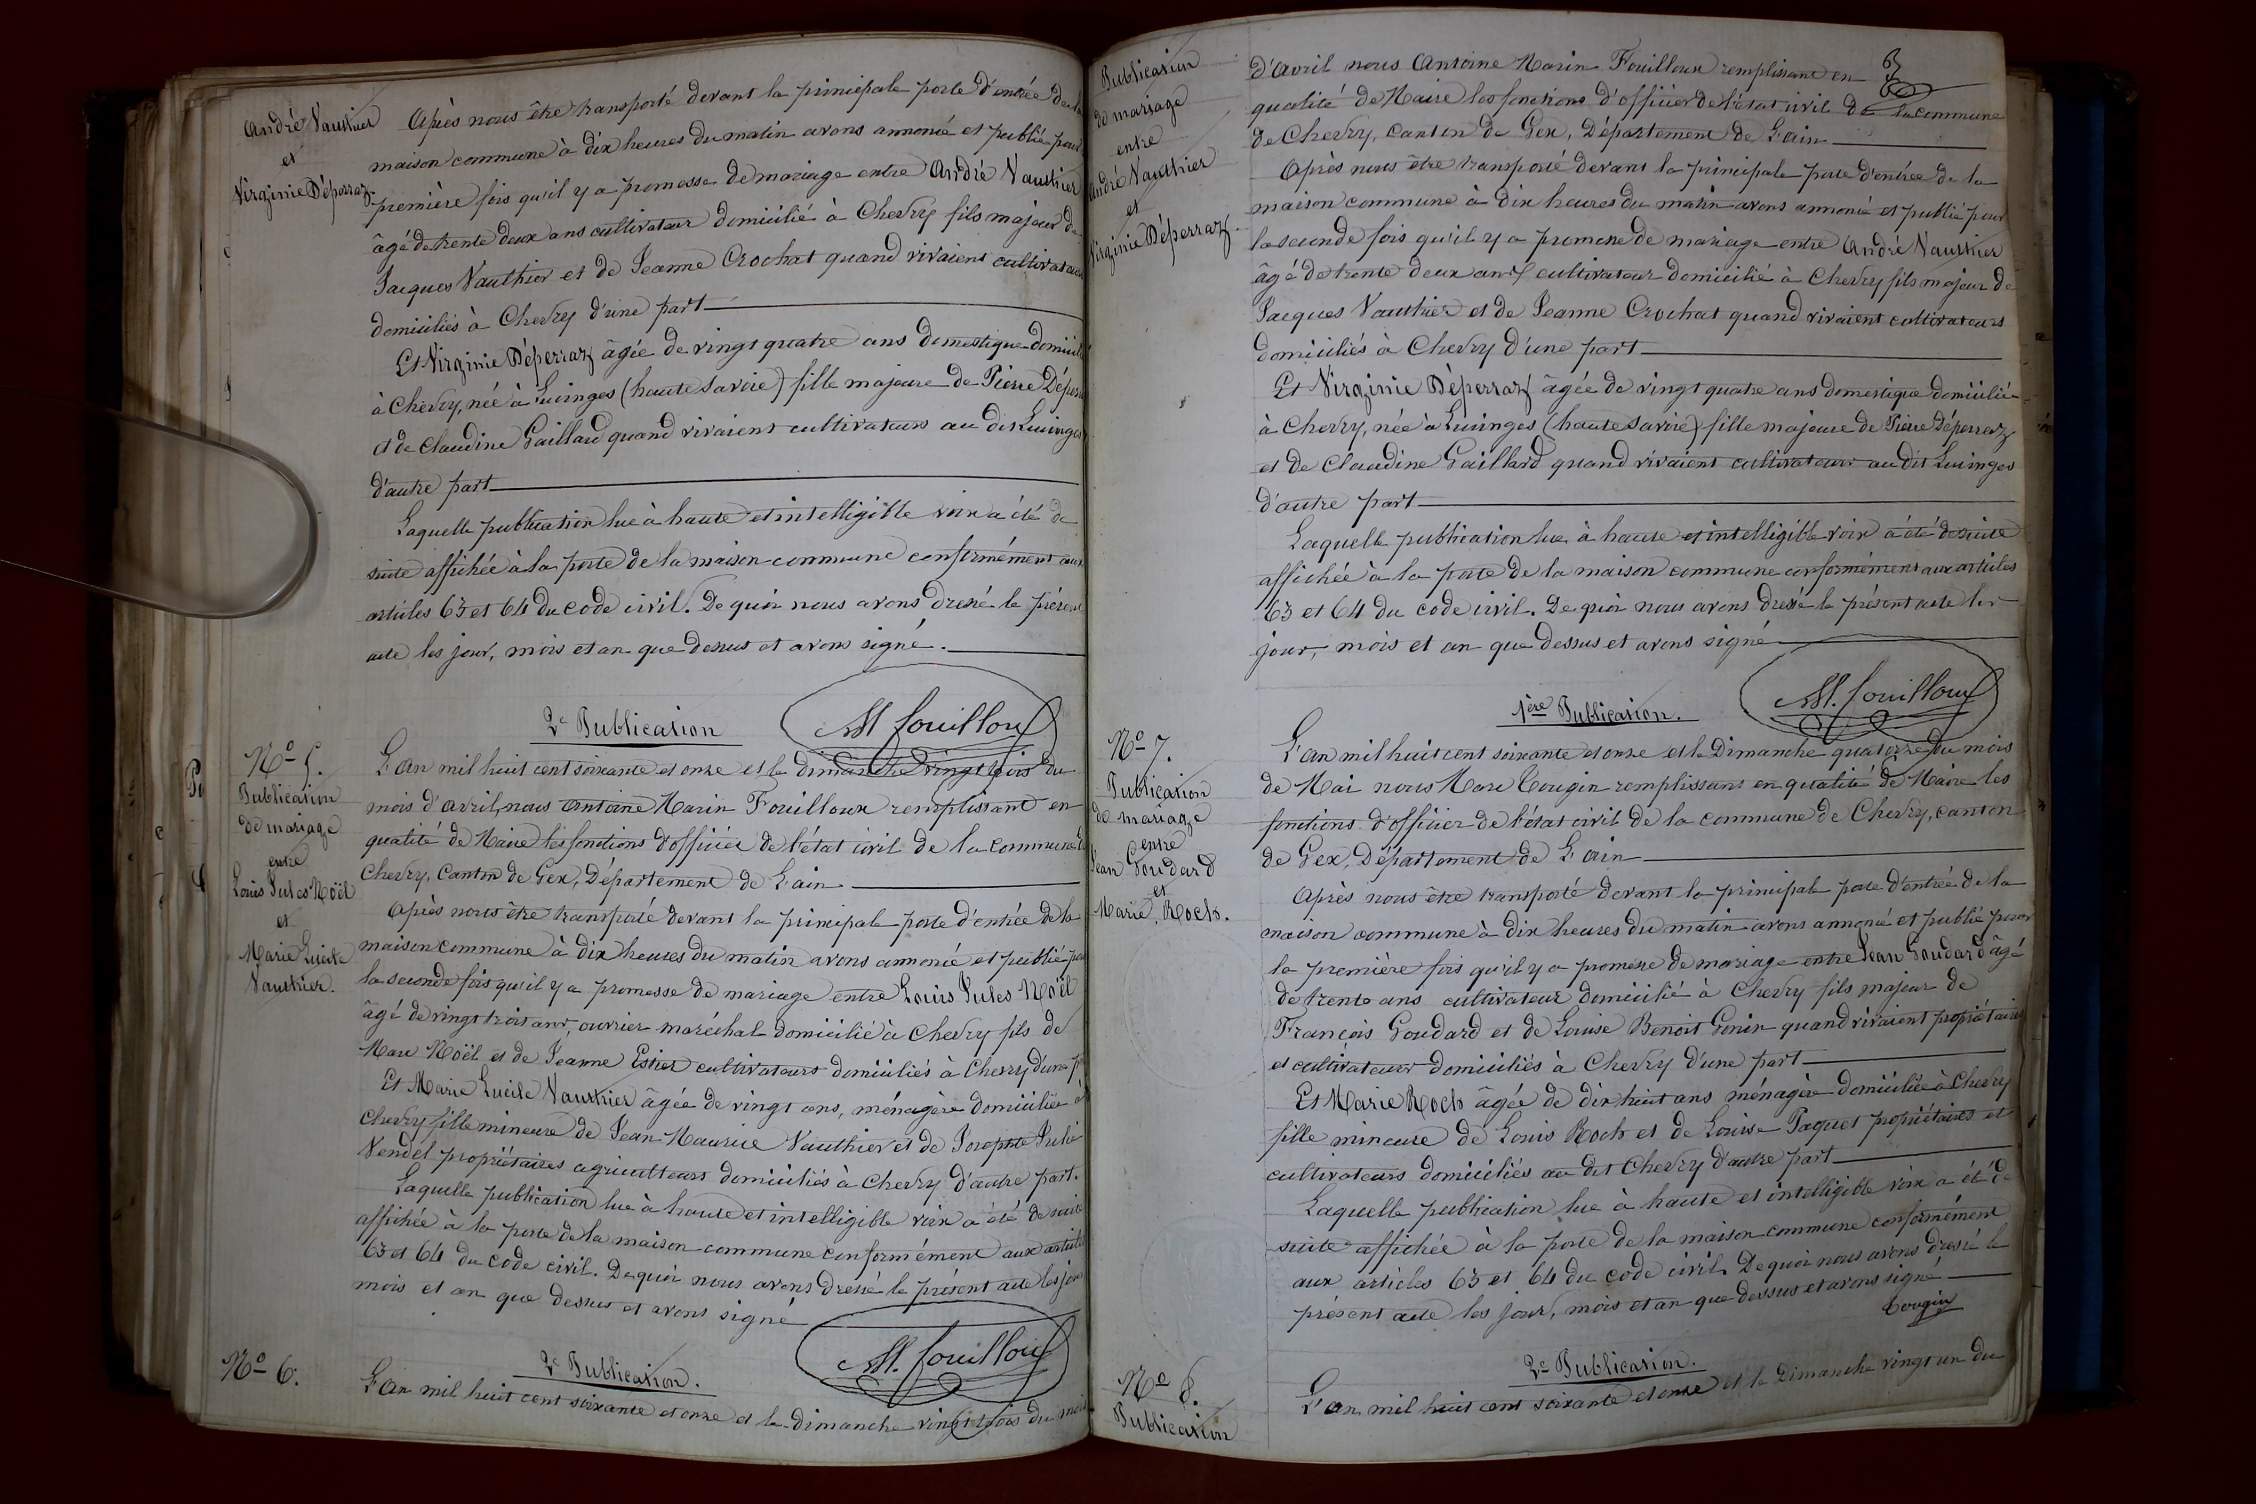 André Vauthier
et
Virginie Déperraz.
Après nous être transporté devant la principale porte d'entrée de la
maison commune à dix heures du matin avons annoncé et publié pour
première fois qu'il y a promesse de mariage entre André Vauthier
âgé de trente deux ans cultivateur domicilié à Chevry fils majeur de
Jacques Vauthier et de Jeanne Crochat quand vivaient cultivateurs
domiciliés à Chevry d'une part
Et Virginie Déperraz âgée de vingt quatre ans domestique domicili
à Chevry, née à Lucinges (haute Savoie) fille majeure de Pierre Déperr
et de Claudine Gaillard quand vivaient cultivateurs au dit Lucinges
d'autre part
Laquelle publication lue à haute et intelligible voix a été de
suite affichée à la porte de la maison commune conformément aux
articles 63 et 64 du code civil. De quoi nous avons dressé le présent
acte les jour, mois et an que dessus et avons signé.
M fouilloux
2e Publication
No 5.
Publication
de mariage
entre
Louis Jules Noël
et
Marie Lucile
Vauthier.
L'an mil huit cent soixante et onze et le dimanche vingt trois du
mois d'avril, nous Antoine Marin Fouilloux remplissant en
qualité de Maire les fonctions d'officier de l'état civil de la commune d
Chevry, Canton de Gex, Département de l'ain
Après nous être transporté devant la principale porte d'entrée de la
maison commune à dix heures du matin avons annoncé et publié po
la seconde fois qu'il y a promesse de mariage entre Louis Jules Noël
âgé de vingt trois ans, ouvrier maréchal domicilié à Chevry fils de
Marc Noël et de Jeanne Estier cultivateurs domiciliés à Chevry d'une p
Et Marie Lucile Vauthier âgée de vingt ans, ménagère domiciliée à
Chevry fille mineure de Jean Maurice Vauthier et de Josephte Julie
Vendel propriétaires agriculteurs domiciliés à Chevry d'autre part.
Laquelle publication lue à haute et intelligible voix a été de suite
affichée à la porte de la maison commune conformément aux articles
63 et 64 du code civil. De quoi nous avons dressé le présent acte les jour
mois et an que dessus et avons signé
M. fouilloux
2e Publication.
No 6.
L'an mil huit cent soixante et onze et le Dimanche vingt trois du mois
Publication
de mariage
entre
André Vauthier
et
Virginie Déperraz.
d'avril nous Antoine Marin Fouilloux remplissant en
qualité de Maire les fonctions d'officier de l'état civil de la commune
de Chevry, canton de Gex, Département de l'ain
Après nous être transporté devant la principale porte d'entrée de la
maison commune à dix heures du matin avons annoncé et publié pour
la seconde fois qu'il y a promesse de mariage entre André Vauthier
âgé de trente deux ans cultivateur domicilié à Chevry fils majeur de
Jacques Vauthier et de Jeanne Crochat quand vivaient cultivateurs
domiciliés à Chevry d'une part
Et Virginie Déperraz âgée de vingt quatre ans domestique domiciliée
à Chevry, née à Lucinges (haute Savoie) fille majeure de Pierre Déperraz
et de Claudine Gaillard quand vivaient cultivateurs au dit Lucinges
d'autre part
Laquelle publication lue à haute et intelligible voix a été de suite
affichée à la porte de la maison commune conformément aux articles
63 et 64 du code civil. De quoi nous avons dressé le présent acte les
jour, mois et an que dessus et avons signé
M. fouilloux
1ère Publication.
No 7.
Publication
de mariage
entre
Jean Goudard
et
Marie Roch.
L'an mil huit cent soixante et onze et le Dimanche quatorze du mois
de Mai nous Marc Cougin remplissant en qualité de Maire les
fonctions d'officier de l'état civil de la commune de Chevry, canton
de Gex, Département de l'ain
Après nous être transporté devant la principale porte d'entrée de la
maison commune à dix heures du matin avons annoncé et publié pour
la première fois qu'il y a promesse de mariage entre Jean Goudard âgé
de trente ans cultivateur domicilié à Chevry fils majeur de
François Goudard et de Louise Benoit Gonin quand vivaient propriétaires
et cultivateurs domiciliés à Chevry d'une part
Et Marie Roch âgée de dix huit ans ménagère domiciliée à Chevry
fille mineure de Louis Roch et de Louise Paquet propriétaires et
cultivateurs domiciliés au dit Chevry d'autre part
Laquelle publication lue à haute et intelligible voix a été de
suite affichée à la porte de la maison commune conformément
aux articles 63 et 64 du code civil. De quoi nous avons dressé le
présent acte les jour, mois et an que dessus et avons signé
Cougin
2e Publication.
No 8.
Publication
L'an mil huit cent soixante et onze et le Dimanche vingt un du